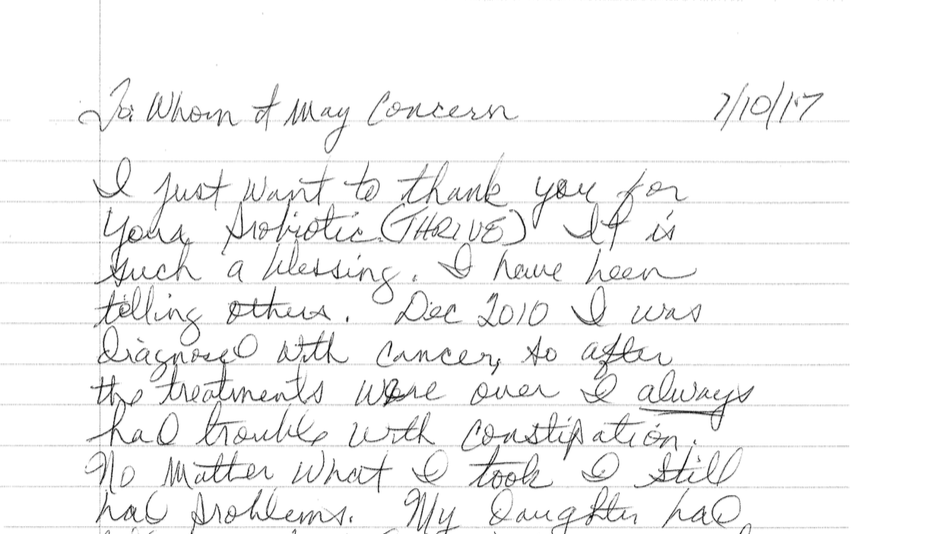 To Whom It May Concern 7/10/17
I just want to thank you for
your probiotic (THRIVE) It is
such a blessing. I have been
telling others. Dec 2010 I was
diagnosed with cancer, so after
the treatments were over I always
had trouble with constipation.
No Matter what I took I still
had problems. My Daughter had